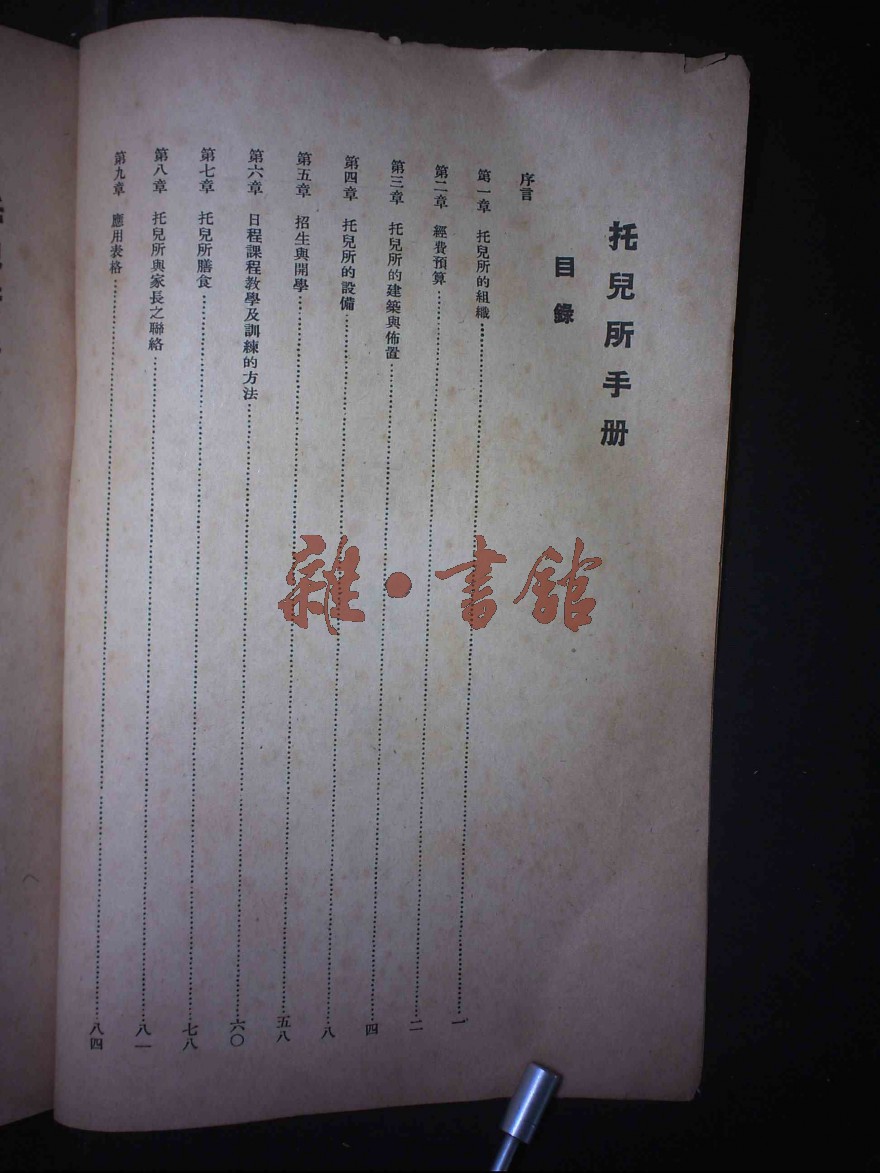 托兒所手册
目錄
序言
第一章 托兒所的組織……一
第二章 經費預算……二
第三章 托兒所的建築與佈置……四
第四章 托兒所的設備……八
第五章 招生與開學……五八
第六章 日程課程教學及訓練的方法……六〇
第七章 托兒所膳食……七八
第八章 托兒所與家長之聯絡……八一
第九章 應用表格……八四
雜·書館